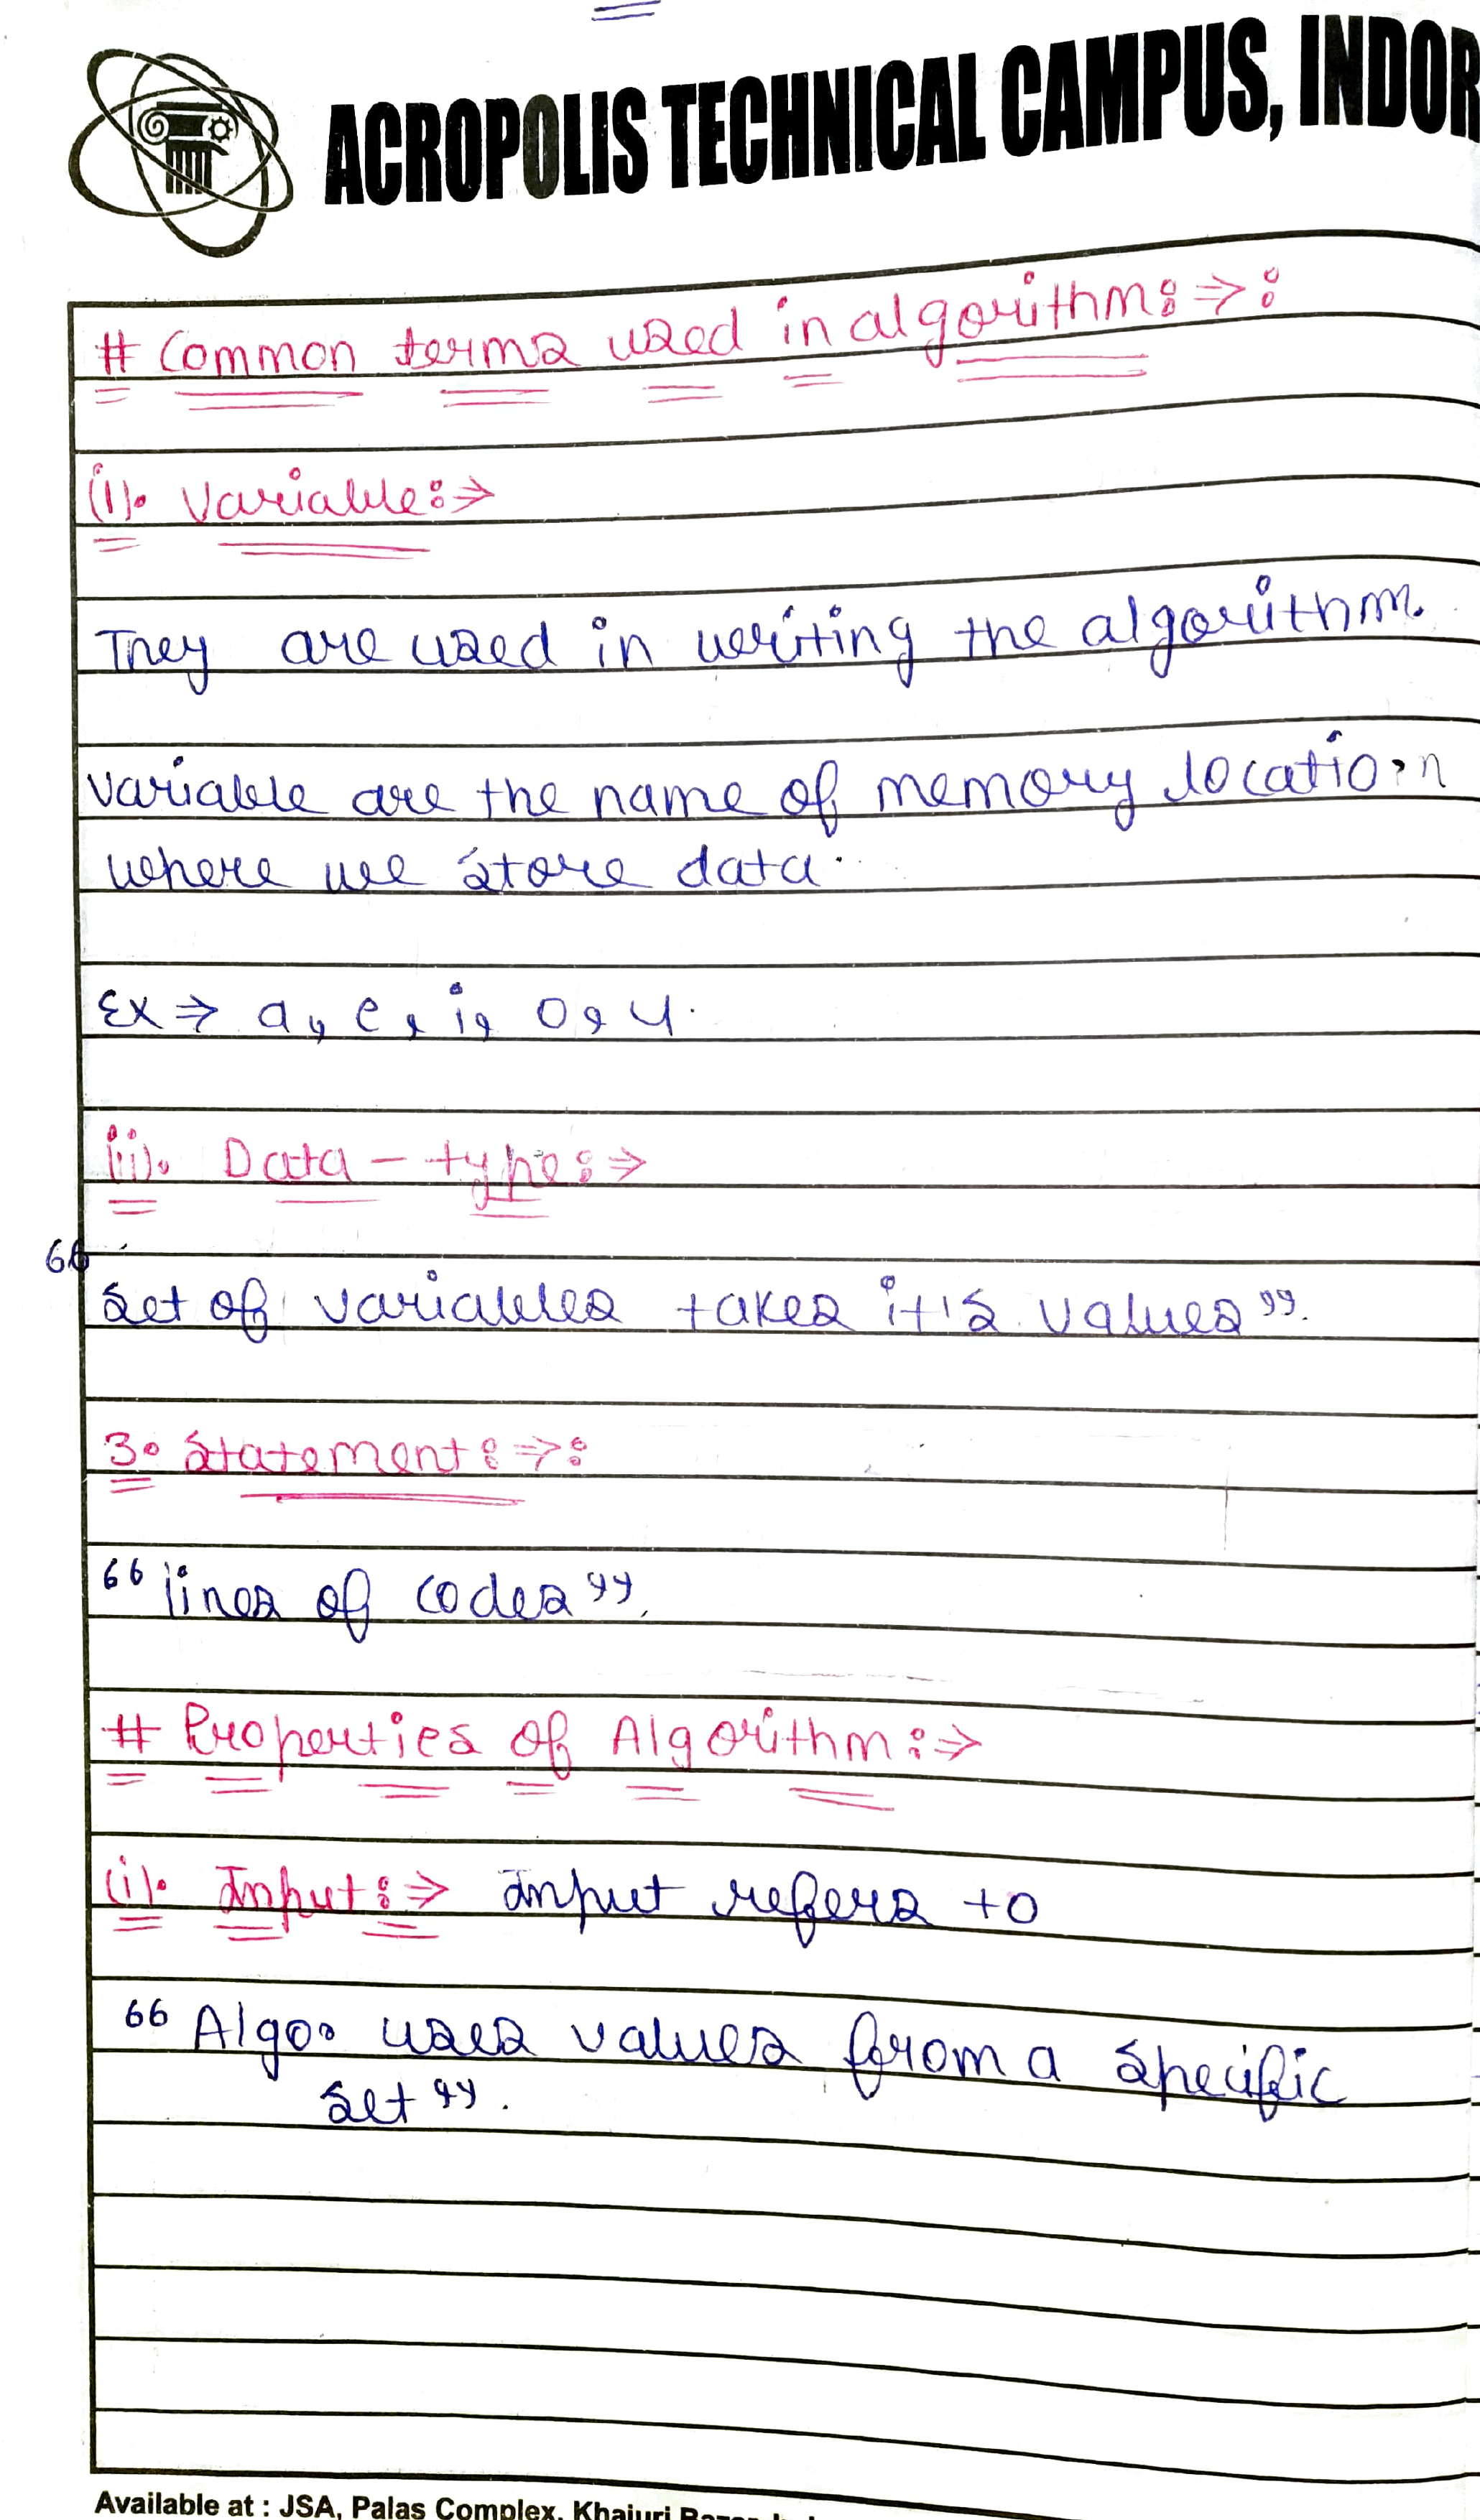 ACROPOLIS TECHNICAL CAMPUS, INDOR
# Common terms used in algorithm:⇒:
(i). Variable:⇒
They are used in writing the algorithm.
variable are the name of memory location
where we store data.
Ex ⇒ a, e, i, o, u.
(ii). Data - type:⇒
"set of variables takes it's values".
3. Statement:⇒:
"lines of codes".
# Properties of Algorithm:⇒
(i). Input:⇒ Input refers to
"Algo. uses values from a specific
set".
Available at : JSA, Palas Complex, Khajuri